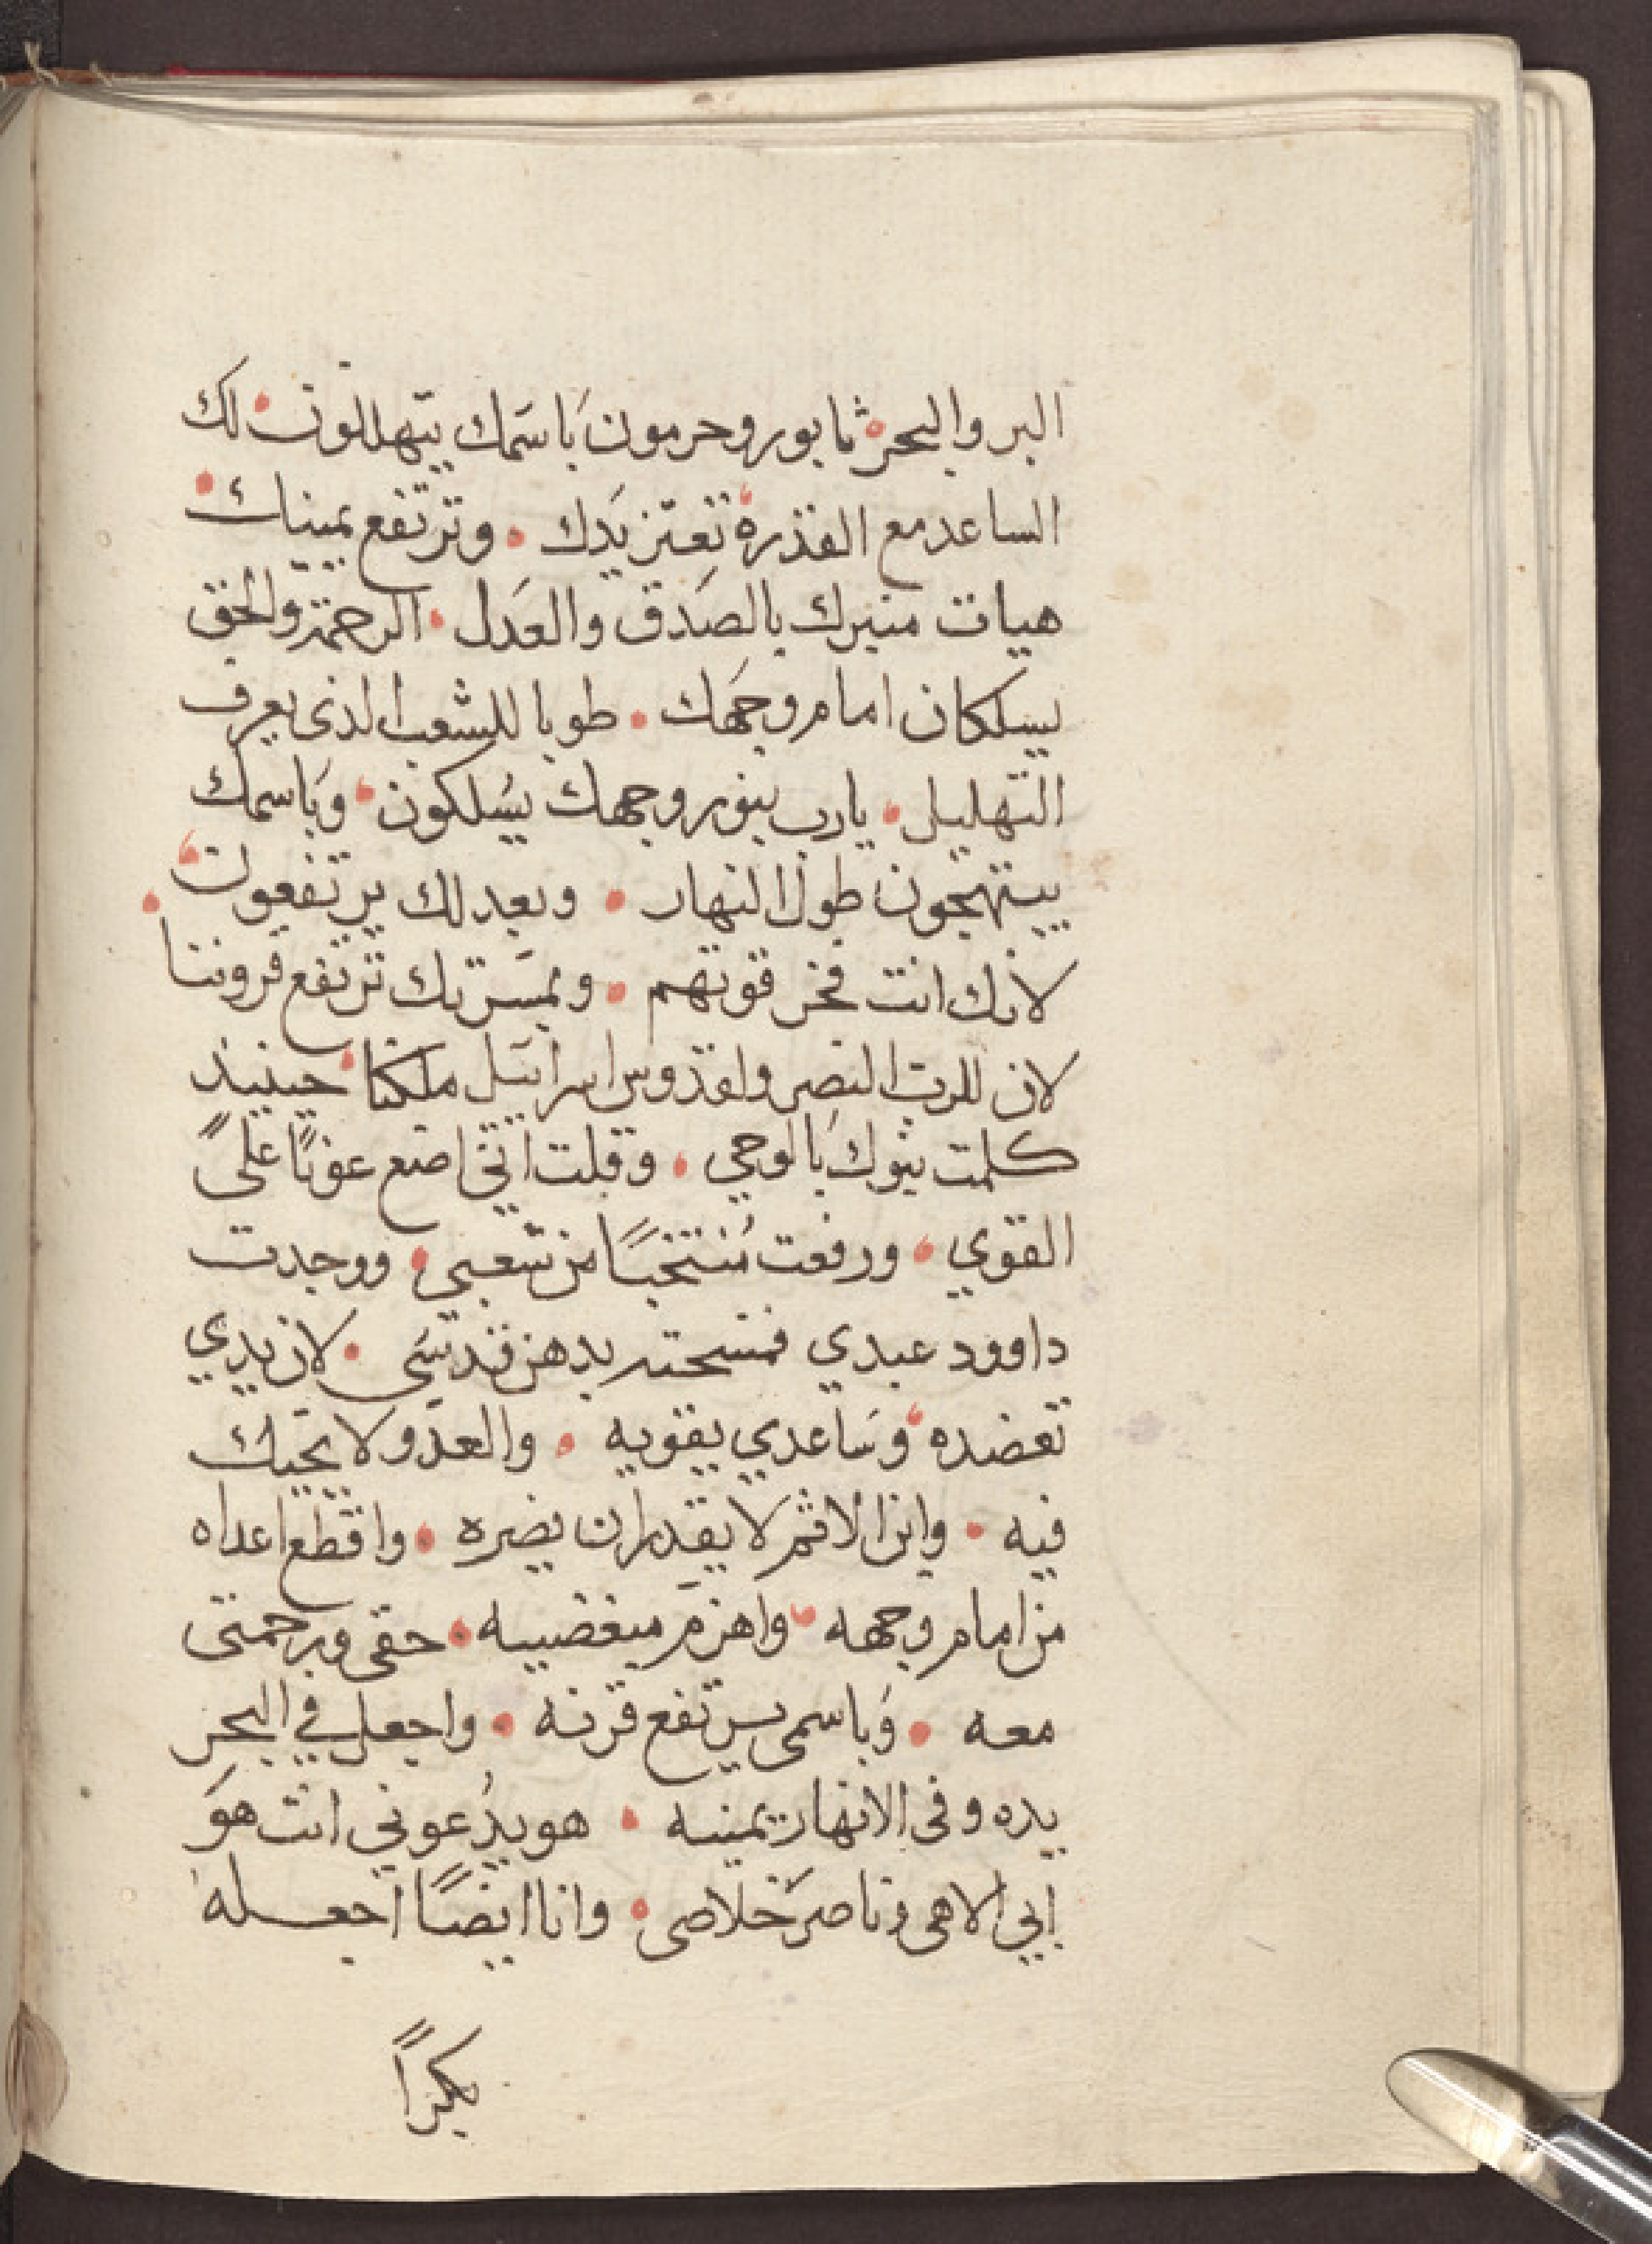 البر والبحر • ثابور وحرمون باسمك يتهللون • لك
الساعد مع القدرة • تعتز يدك • وترتفع يمينك •
هيات منبرك بالصدق والعدل • الرحمة والحق
يسلكان امام وجهك • طوبا للشعب الذي يعرف
التهليل • يارب بنور وجهك يسلكون • وباسمك
يبتهجون طول النهار • وبعدلك يرتفعون •
لانك انت فخر قوتهم • وبمسرتك ترتفع قروننا •
لان للرب النصر ولقدوس اسرائيل ملكنا • حينيذ
كلمت بنوك بالوحي • وقلت انني اضع عونًا على
القوي • ورفعت مُنتخبًا من شعبي • ووجدت
داوود عبدي فمسحته بدهن قدسي • لان يدي
تعضده • وساعدي يقويه • والعدو لا
فيه • وابن الاثم لا يقدر ان يضره • واقطع اعداه
من امام وجهه • واهزم مبغضيه • حقي ورحمتي
معه • وباسمي يرتفع قرنه • واجعل في البحر
يده وفي الانهار يمينه • هو يدعوني انت هو
ابي الاهي وناصر خلاصي • وانا ايضًا اجعله
بكرًا